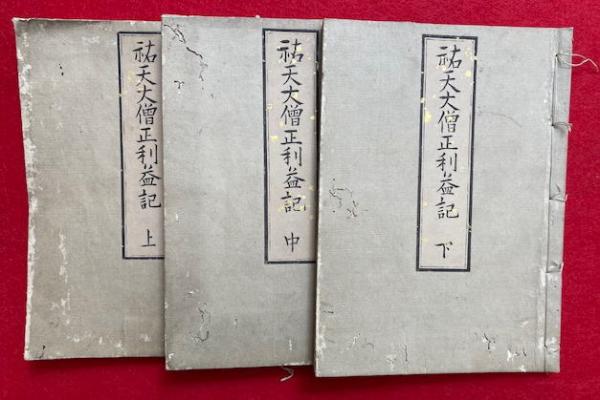 祐天大僧正利益記 上
祐天大僧正利益記 中
祐天大僧正利益記 下